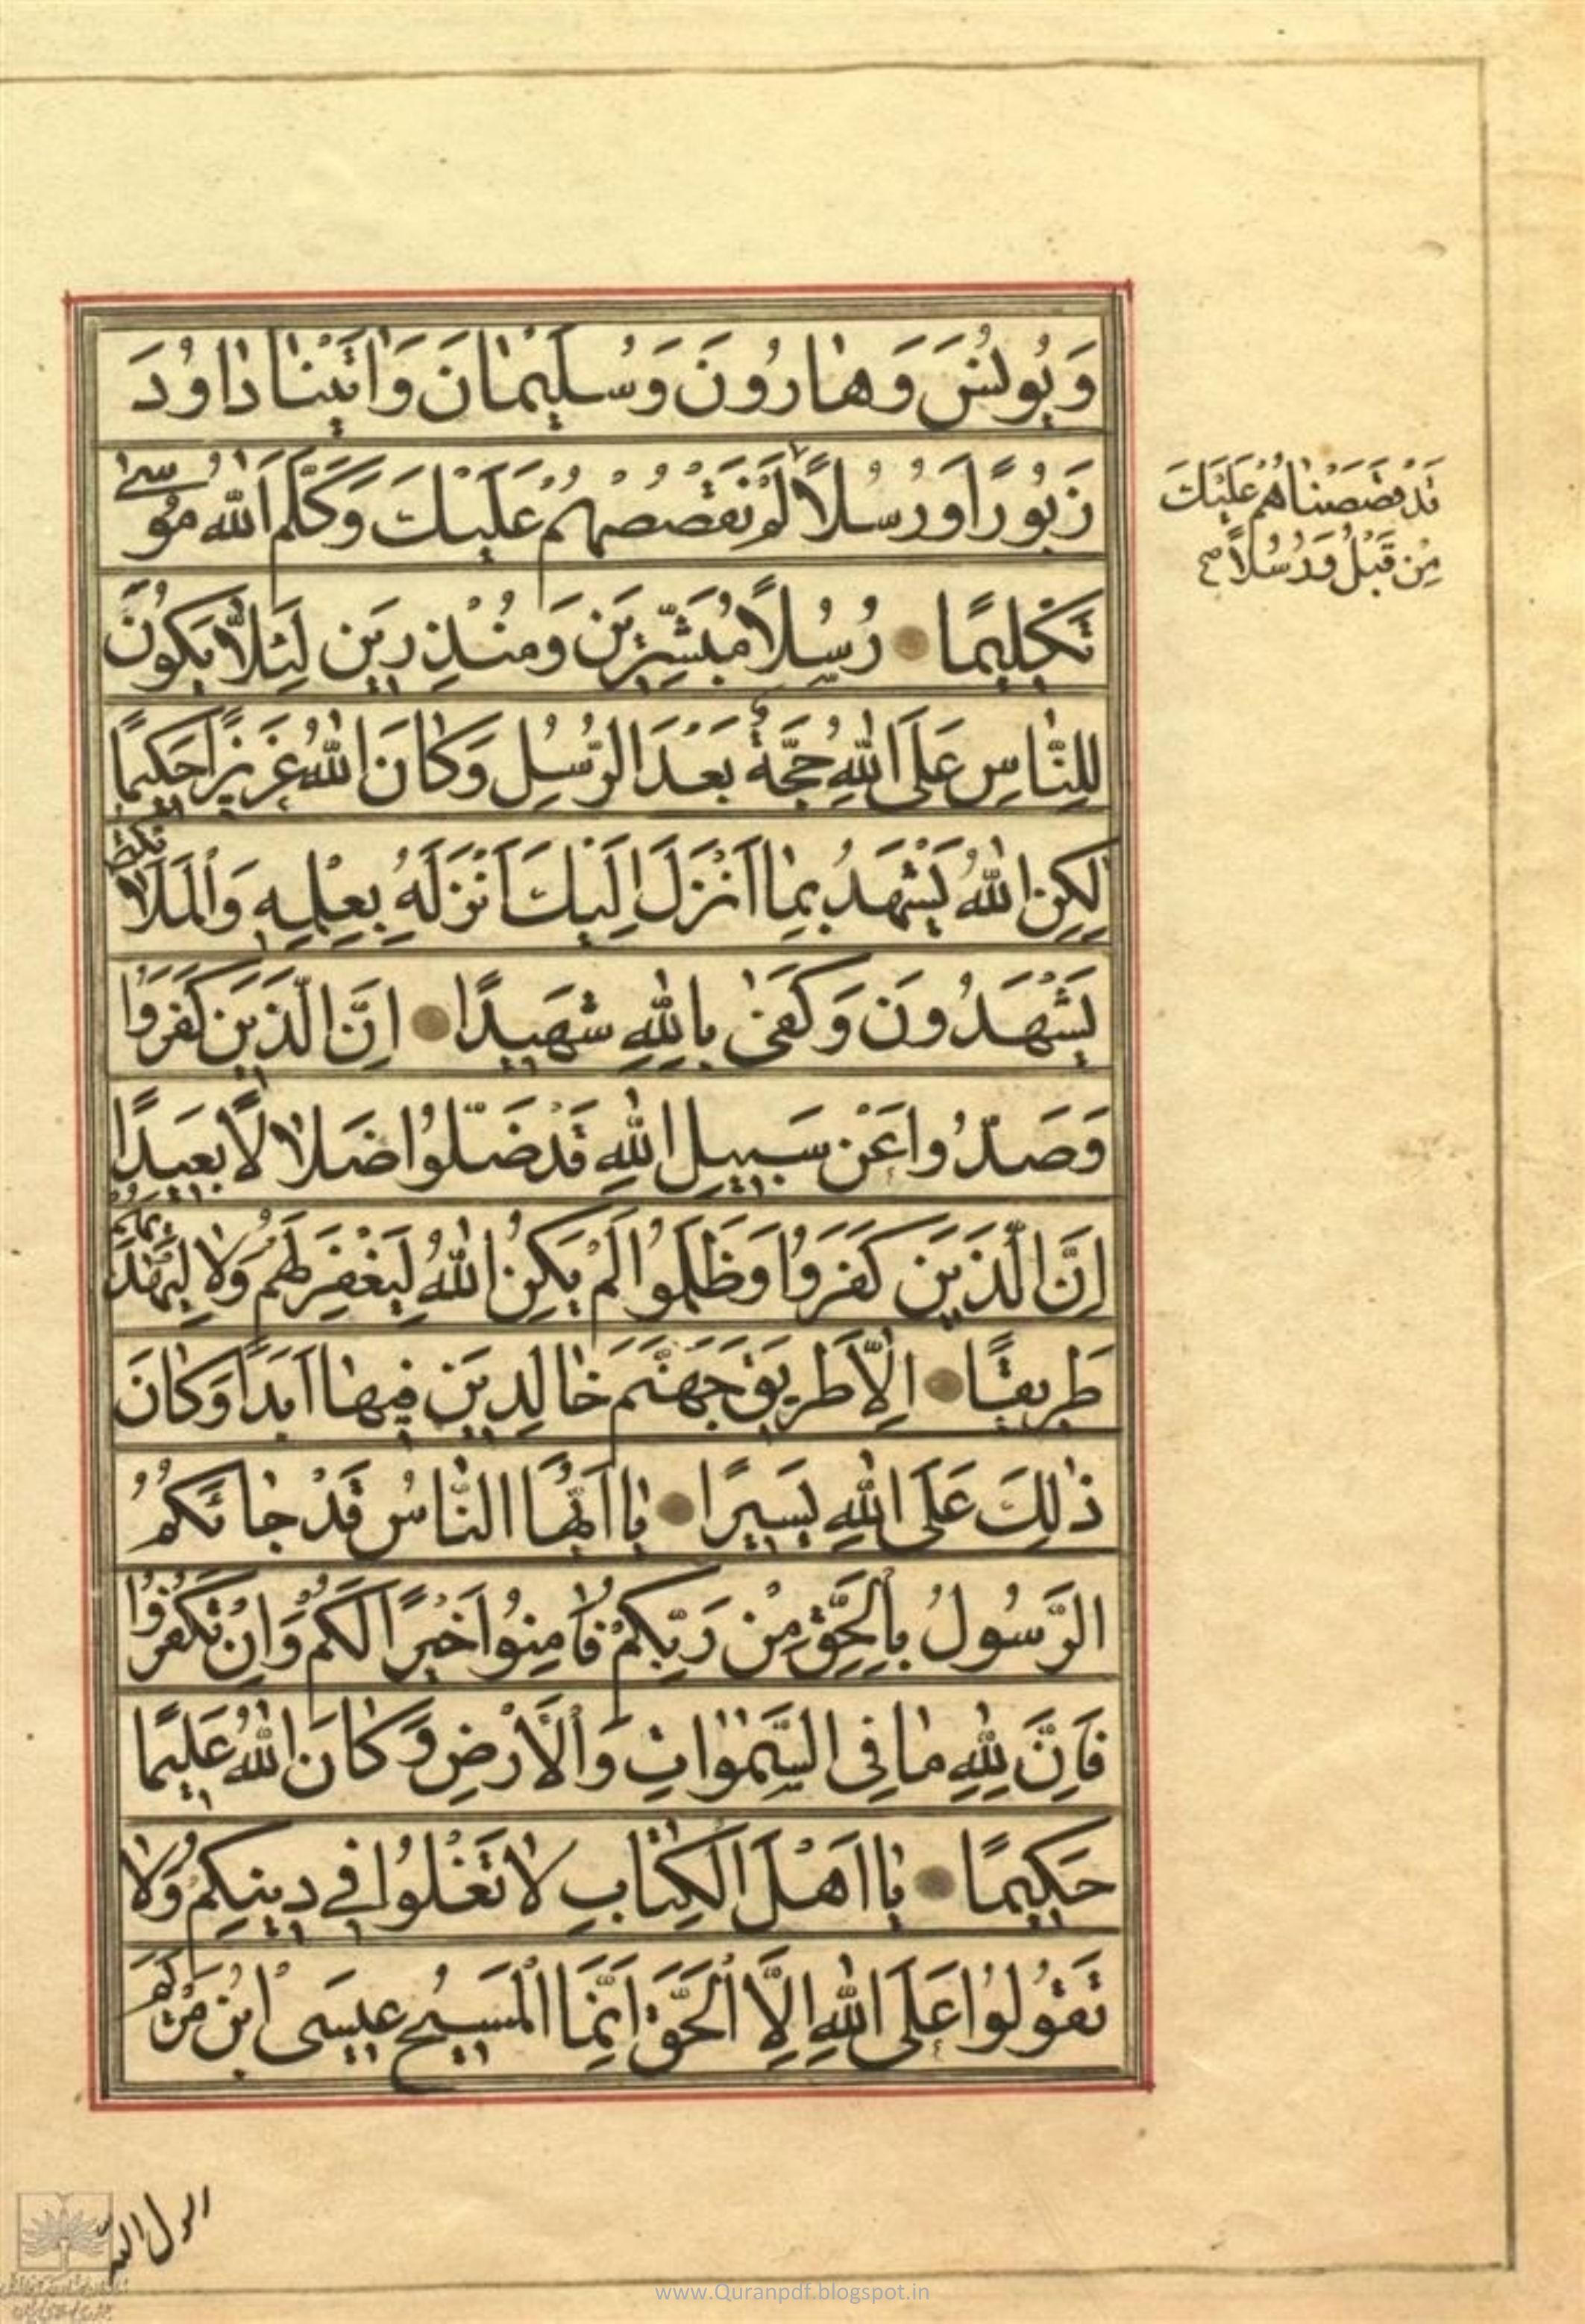 وَيُونُسَ وَهٰارُونَ وَسُلَيْمٰانَ وَاٰتَيْنٰا دٰاوُدَ
زَبُورًا وَرُسُلاً لَمْ نَقْصُصْهُمْ عَلَيْكَ وَكَلَّمَ اَللّٰهُ مُوسىٰ
قَدْ قَصَصْنٰاهُمْ عَلَيْكَ
مِنْ قَبْلُ وَرُسُلاً صح
تَكْلِيمًا رُسُلاً مُبَشِّرِينَ وَمُنْذِرِينَ لِئَلاّٰ يَكُونَ
لِلنّٰاسِ عَلَى اللّٰهِ حُجَّةٌ بَعْدَ الرُّسُلِ وَكٰانَ اللّٰهُ عَزِيزًا حَكِيمًا
لٰكِنِ اللّٰهُ يَشْهَدُ بِمٰا اَنْزَلَ اِلَيْكَ اَنْزَلَهُ بِعِلْمِهِ وَالْمَلاٰئِكَةُ
يَشْهَدُونَ وَكَفىٰ بِاللّٰهِ شَهِيدًا اِنَّ الَّذِينَ كَفَرُوا
وَصَدُّوا عَنْ سَبِيلِ اللّٰهِ قَدْ ضَلُّوا ضَلاٰلاً بَعِيدًا
اِنَّ الَّذِينَ كَفَرُوا وَظَلَمُوا لَمْ يَكُنِ اللّٰهُ لِيَغْفِرَ لَهُمْ وَلاٰ لِيَهْدِيَهُمْ
طَرِيقًا اِلاّٰ طَرِيقَ جَهَنَّمَ خٰالِدِينَ فِيهٰا اَبَدًا وَكٰانَ
ذٰلِكَ عَلَى اللّٰهِ يَسِيرًا يٰا اَيُّهَا النّٰاسُ قَدْ جٰائَكُمُ
الرَّسُولُ بِالْحَقِّ مِنْ رَبِّكُمْ فَاٰمِنُوا خَيْرًا لَكُمْ وَاِنْ تَكْفُرُوا
فَاِنَّ لِلّٰهِ مٰا فِى السَّمٰوٰاتِ وَالْاَرْضِ وَكٰانَ اللّٰهُ عَلِيمًا
حَكِيمًا يٰا اَهْلَ الْكِتٰابِ لاٰ تَغْلُوا فِي دِينِكُمْ وَلاٰ
تَقُولُوا عَلَى اللّٰهِ اِلاَّ الْحَقَّ اِنَّمَا الْمَسِيحُ عِيسَى ابْنُ مَرْيَمَ
رسول الله
www.Quranpdf.blogspot.in